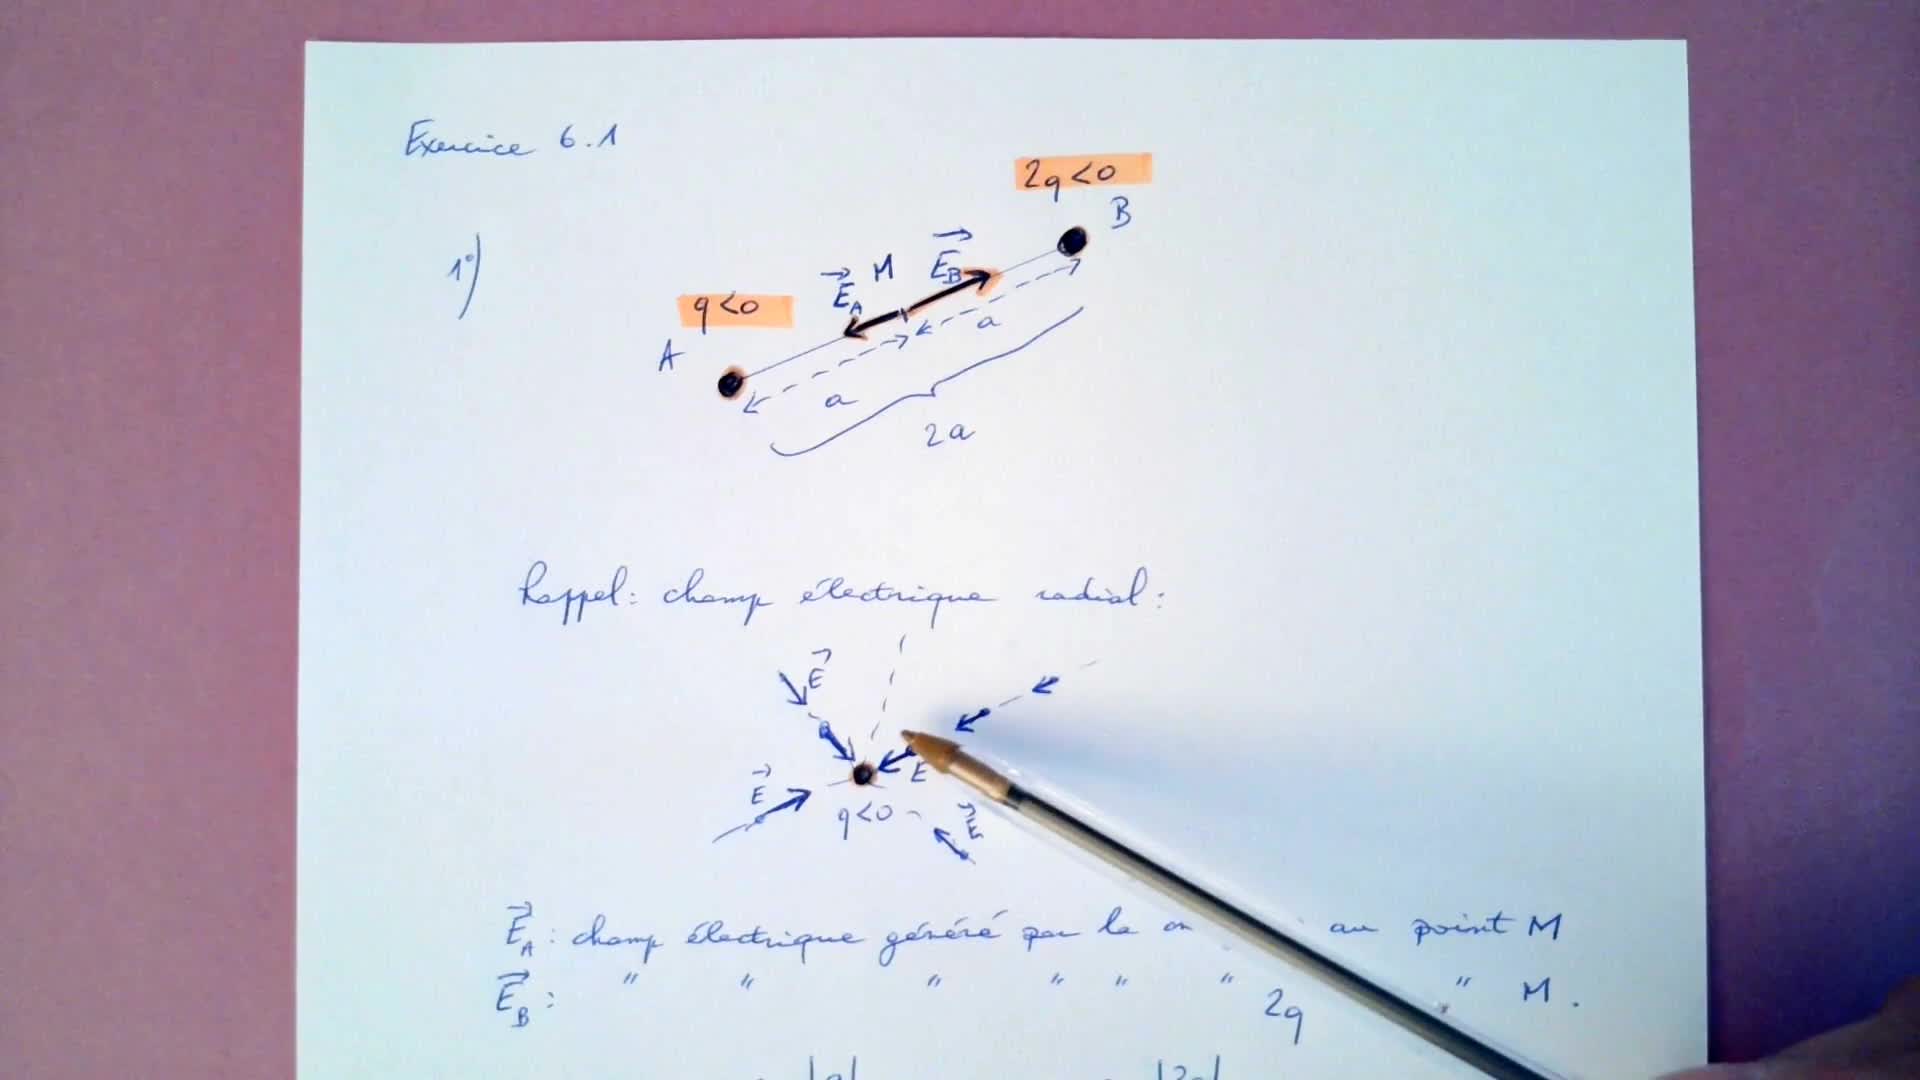 Exercice 6.1
2q<0
B
1°)
M
E_B
E_A
q<0
a
A
a
2a
Rappel: champ électrique radial:
E
E
E
E
q<0
E_A : champ électrique généré par la au point M
E_B : " " " " " " 2q " M.
|q| |2q|